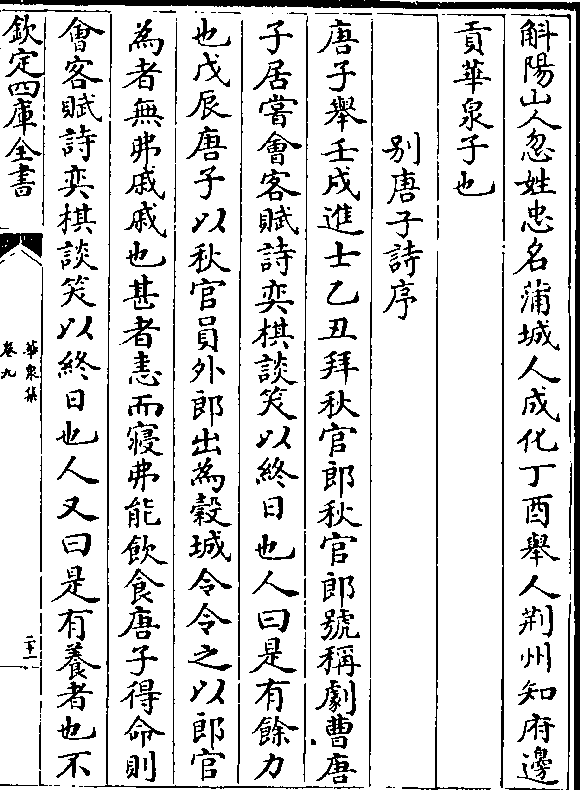 斛陽山人忽姓忠名蒲城人成化丁酉舉人荆州知府邊
貢華泉子也
别唐子詩序
唐子舉壬戌進士乙丑拜秋官郎秋官郎號稱劇曹唐
子居嘗會客賦詩奕棋談笑以終日也人曰是有餘力
也戊辰唐子以秋官員外郎出為穀城令令之以郎官
為者無弗戚戚也甚者恚而寢弗能飲食唐子得命則
會客賦詩奕棋談笑以終日也人又曰是有養者也不
欽定四庫全書
華泉集
卷九
二十一